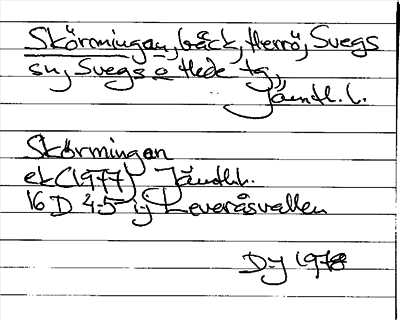 Skörmningan, bäck, Herrö, Svegs
sn, Svegs o Hede tg,
Jämtl. l.
Skörmningan
ek (1977) Jämtl.l.
16 D 4-5 i-j Leveråsvallen
D-y 1978